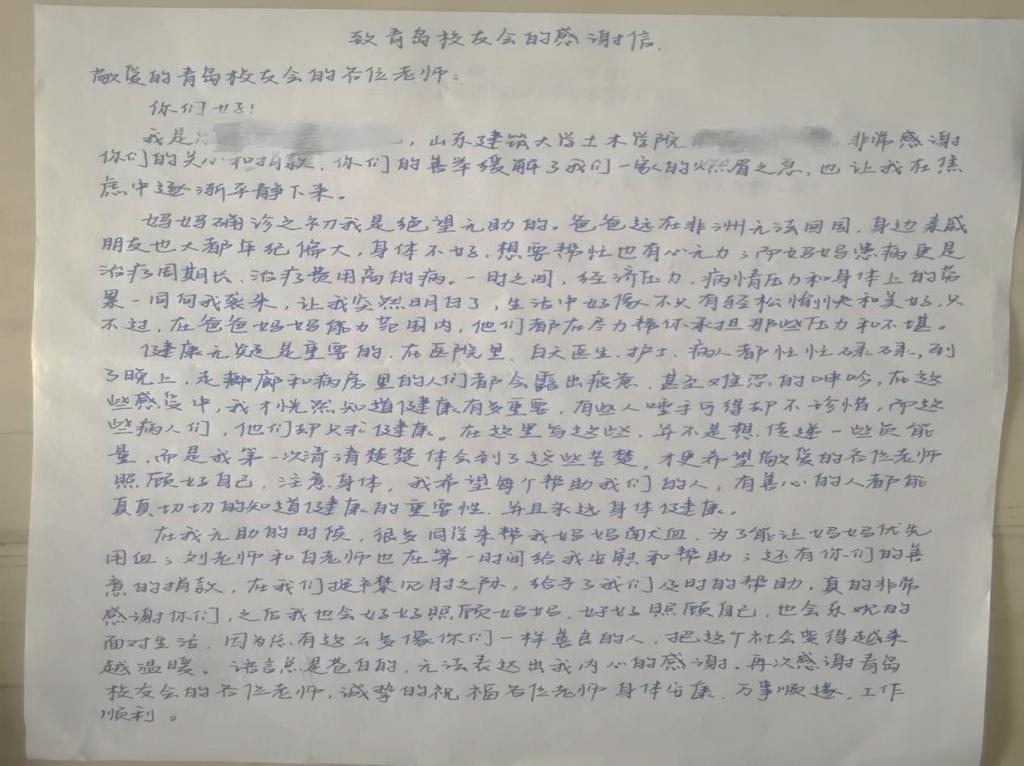 致青岛校友会的感谢信.
敬爱的青岛校友会的各位老师：
你们好！
我是，山东建筑大学土木学院 非常感谢
你们的关心和捐款，你们的善举缓解了我们一家的燃眉之急，也让我在焦
虑中逐渐平静下来。
妈妈确诊之初我是绝望无助的。爸爸远在非洲无法回国，身边亲戚
朋友也大都年纪偏大，身体不好，想要帮忙也有心无力；而妈妈患病更是
治疗周期长、治疗费用高的病。一时之间，经济压力、病情压力和身体上的劳
累一同向我袭来，让我突然明白了，生活中好像不只有轻松愉快和美好，只
不过，在爸爸妈妈能力范围内，他们都在尽力帮你承担那些压力和不堪。
健康无疑是重要的，在医院里，白天医生、护士、病人都忙忙碌碌，到
了晚上，走廊和病房里的人们都会露出疲惫、甚至难忍的呻吟，在这
些感受中，我才恍然知道健康有多重要，有些人唾手可得却不珍惜，而这
些病人们，他们却只求健康。在这里写这些，并不是想传递一些负能
量，而是我第一次清清楚楚体会到了这些苦楚，才更希望敬爱的各位老师
照顾好自己，注意身体，我希望每个帮助我们的人，有善心的人都能
真真切切的知道健康的重要性，并且永远身体健康。
在我无助的时候，很多同学来帮我妈妈献血，为了能让妈妈优先
用血；刘老师和白老师也在第一时间给我安慰和帮助；还有你们的善
意的捐款，在我们捉襟见肘之际，给予了我们及时的帮助，真的非常
感谢你们，之后我也会好好照顾妈妈，好好照顾自己，也会乐观的
面对生活，因为总有这么多像你们一样善良的人，把这个社会变得越来
越温暖。语言总是苍白的，无法表达出我内心的感谢。再次感谢青岛
校友会的各位老师，诚挚的祝福各位老师身体安康，万事顺遂，工作
顺利。